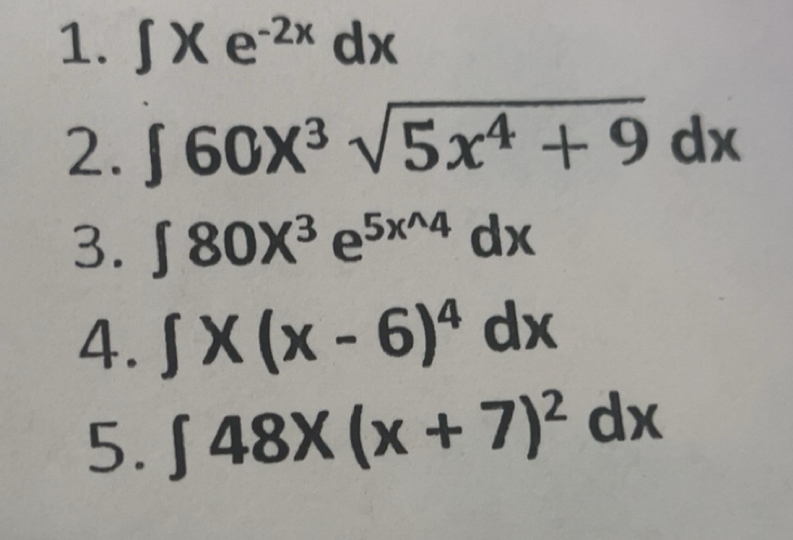 1. ∫ X e⁻²ˣ dx
2. ∫ 60X³ √(5x⁴ + 9) dx
3. ∫ 80X³ e^5x^4 dx
4. ∫ X (x - 6)⁴ dx
5. ∫ 48X (x + 7)² dx